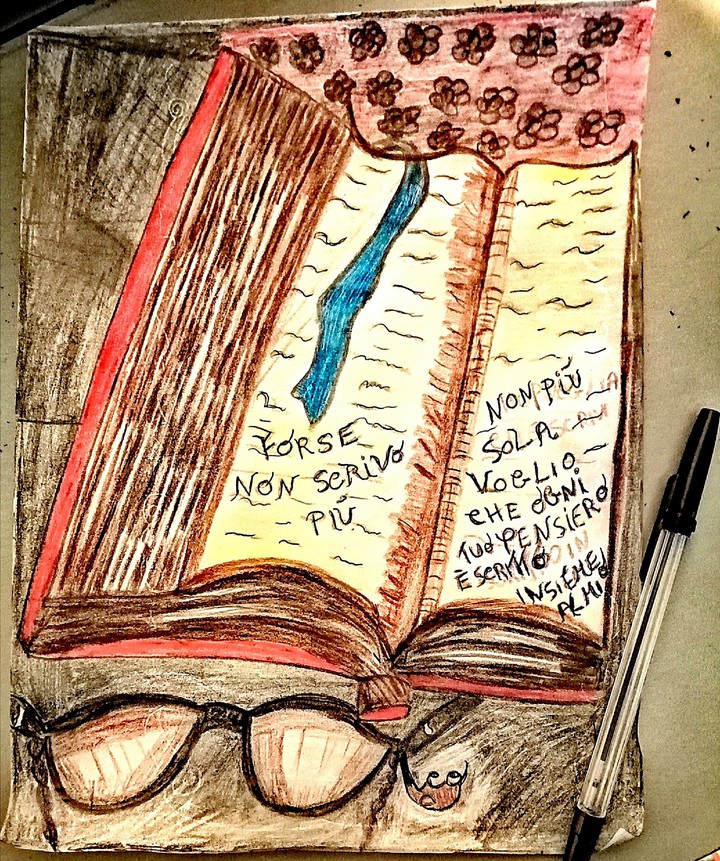 FORSE
NON SCRIVO
PIÙ
NON PIÙ
SOLA
VOGLIO
CHE OGNI
TUO PENSIERO
È SCRITTO
INSIEME
AL MIO